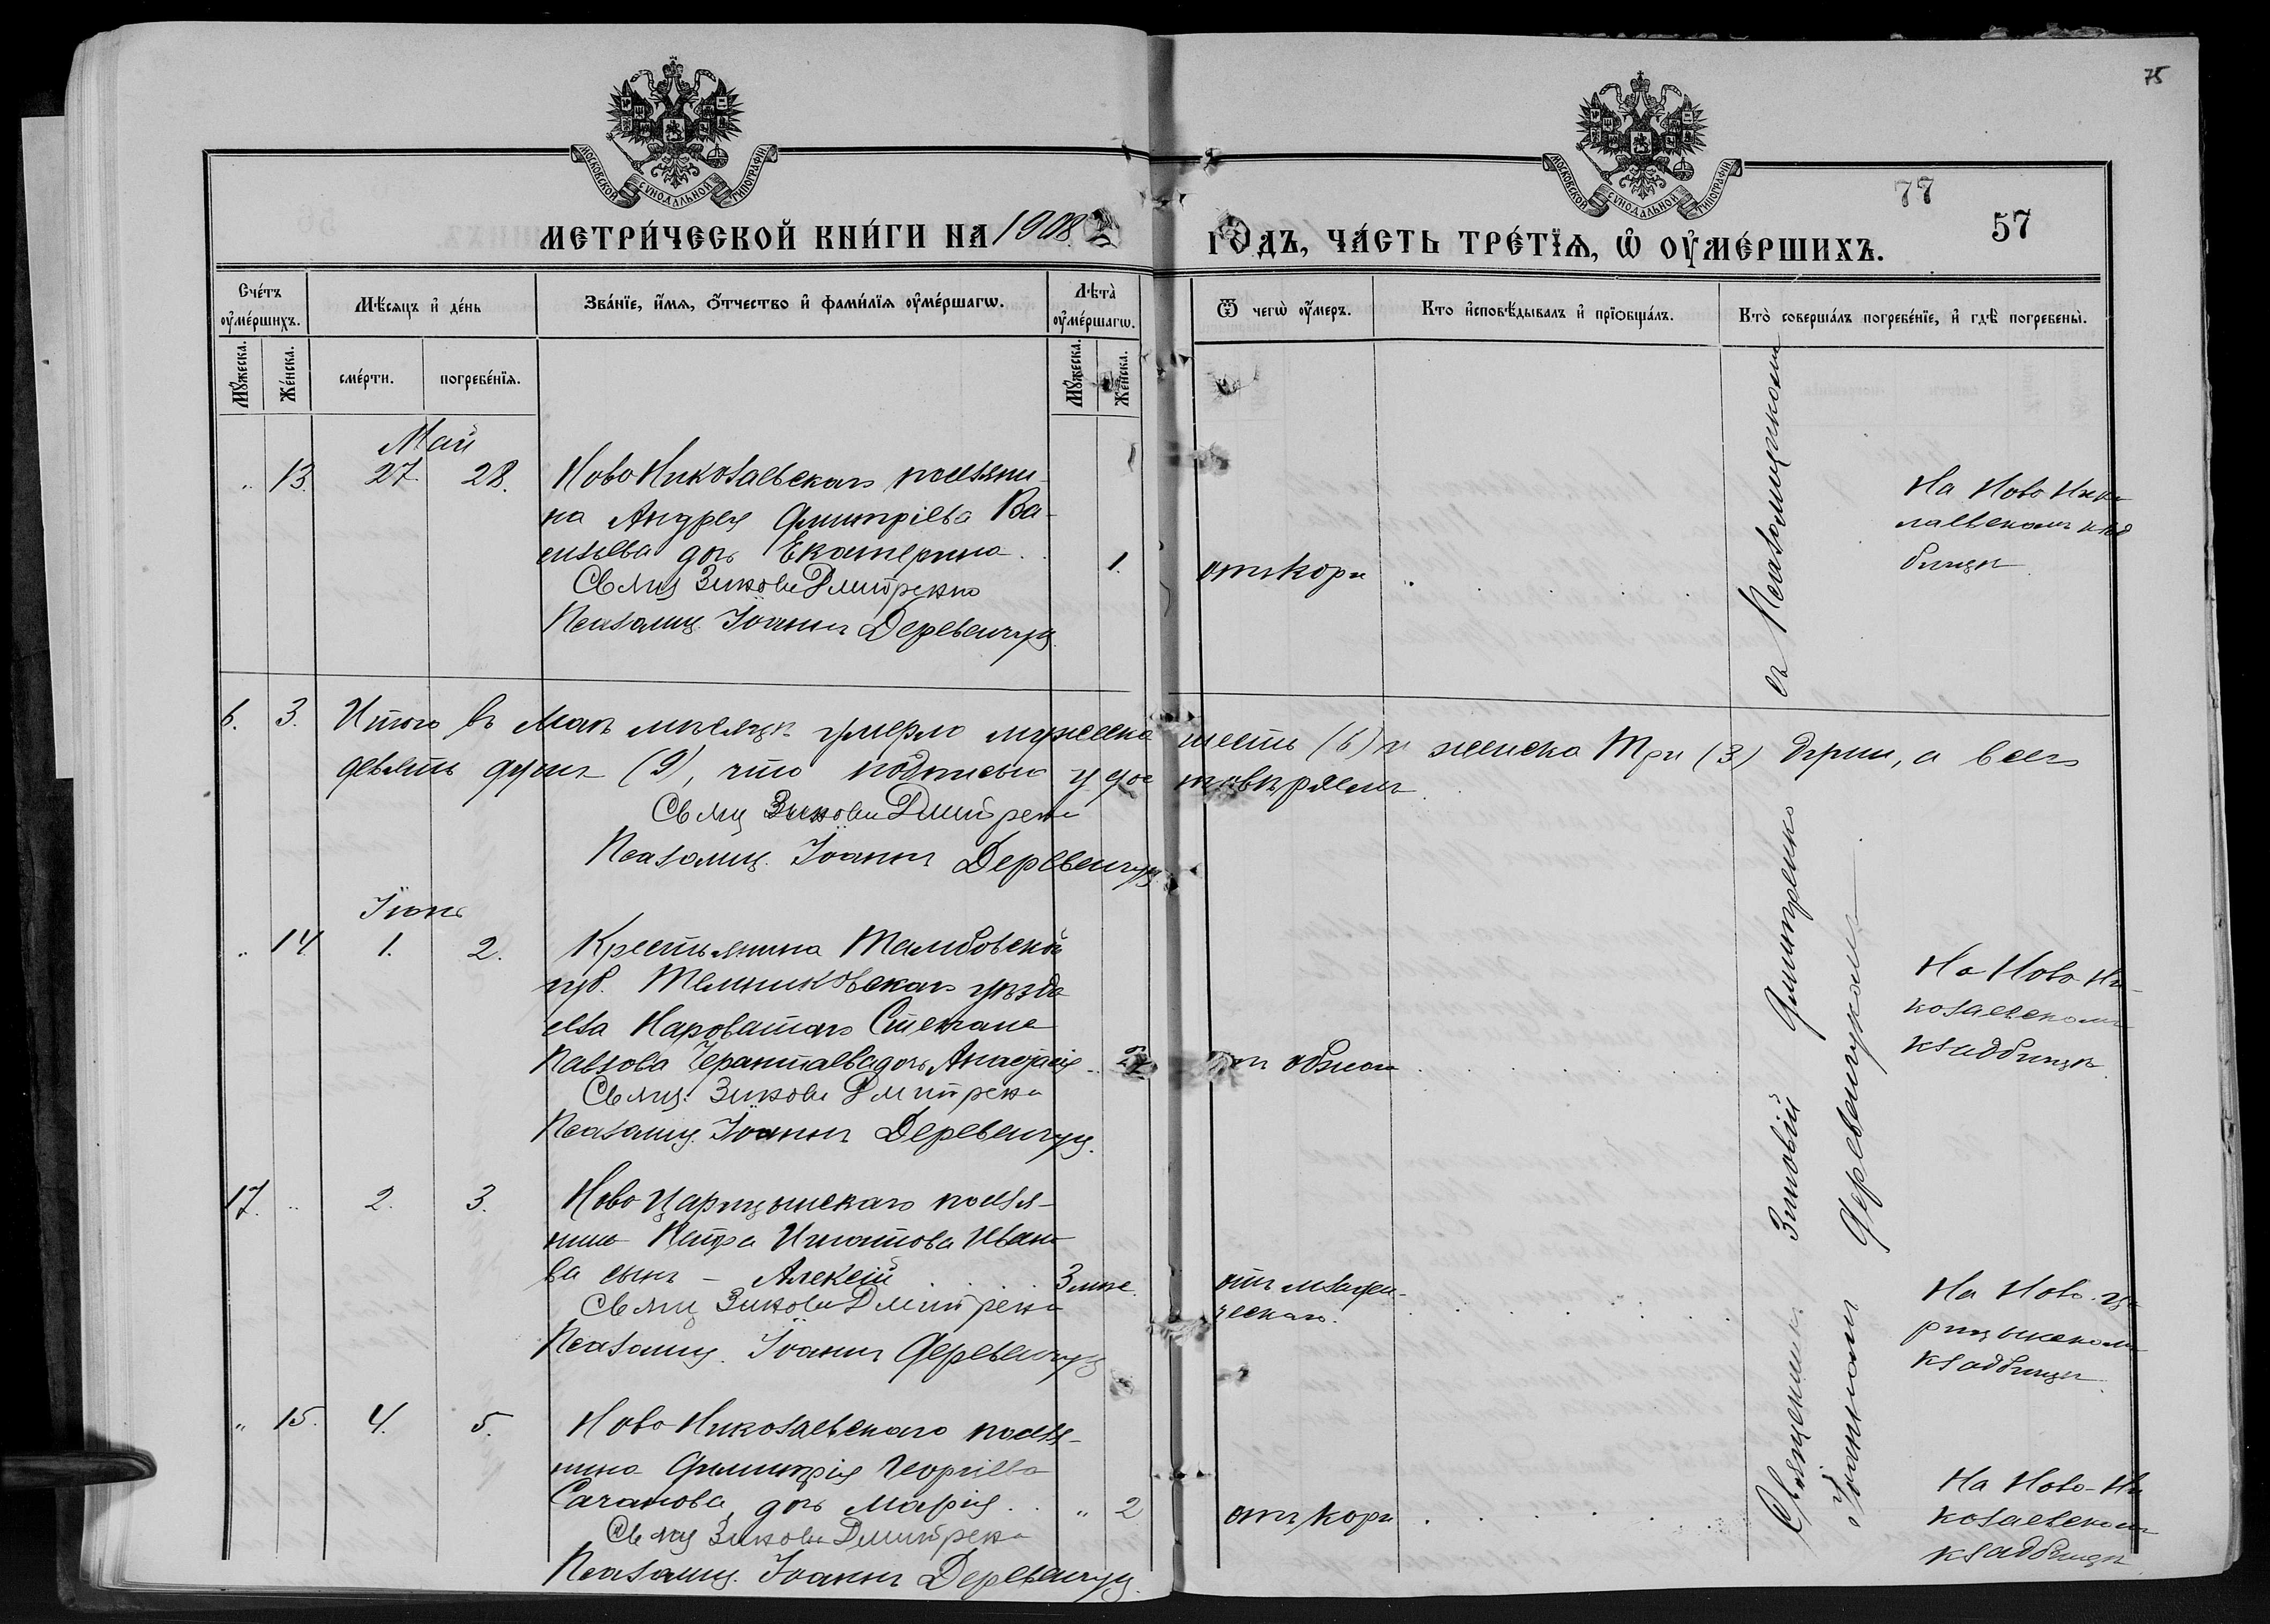 75
МОСКОВСКОЙ СѴНОДАЛЬНОЙ ТИПОГРАФІИ
МОСКОВСКОЙ СѴНОДАЛЬНОЙ ТИПОГРАФІИ
77
57
МЕТРИ́ЧЕСКОЙ КНИ́ГИ НА 1908
ГОДЪ, ЧА́СТЬ ТРЕ́ТЇѦ, Ѡ҆ ОУ҆МЕ́РШИХЪ.
Сче́тъ оу҆ме́ршихъ.
Мѣ́сяцъ и҆ де́нь
Зва́нїе, и҆́мя, о҆́тчество и҆ фами́лїя оу҆ме́ршагѡ.
Лѣта̀ оу҆ме́ршагѡ.
Ѿ чегѡ̀ оу҆́меръ.
Кто̀ и҆сповѣ́дывалъ и҆ прїѻбща́лъ.
Кто̀ соверша́лъ погребе́нїе, и҆ гдѣ̀ погребены̀.
Мꙋ́жеска.
Же́нска.
сме́рти.
погребе́нїя.
Мꙋ́жеска.
Же́нска.
Май
" 13. 27. 28. Ново Николаевскаго поселяни-
на Андрея Димитріева Ва-
сильева дочь Екатерина . . 1.
Свящ Зиновій Дмитренко
Псаломщ. Іоаннъ Деревенчук
отъ кори
На Ново Нико
лаевскомъ клад
бищѣ
6. 3. Итого въ Маѣ мѣсяцѣ умерло мужеска шесть (6) и женска Три (3) души, а всего
девять душъ (9), что подписью удостовѣряемъ.
Свящ Зиновій Дмитренко
Псаломщ. Іоаннъ Деревенчук
Іюнь
" 14. 1. 2. Крестьянина Тамбовской
губ. Темниковскаго уѣзда
села Нароватаго Степана
Павлова дочь Анастасія
Свящ. Зиновій Дмитренко
Псаломщ. Іоаннъ Деревенчук.
На Ново Ни-
колаевскомъ
кладбищѣ
17. " 2. 3. Ново Царицынскаго поселя-
нина Петра Игнатова Ивано
ва сынъ – Алексій . . . . 3 мѣс.
Свящ Зиновій Дмитренко
Псаломщ. Іоаннъ Деревенчук
отъ младен-
ческаго.
На Ново-Ца
рицынскомъ
кладбищѣ.
" 15. 4. 5. Ново Николаевскаго поселя-
нина Димитрія Георгіева
дочь Марія . . " 2
Свящ Зиновій Дмитренко
Псаломщ. Іоаннъ Деревенчук.
отъ кори
На Ново-Ни
колаевскомъ
кладбищѣ
Священникъ Зиновій Димитренко съ Псаломщикомъ
Іоанномъ Деревенчукомъ